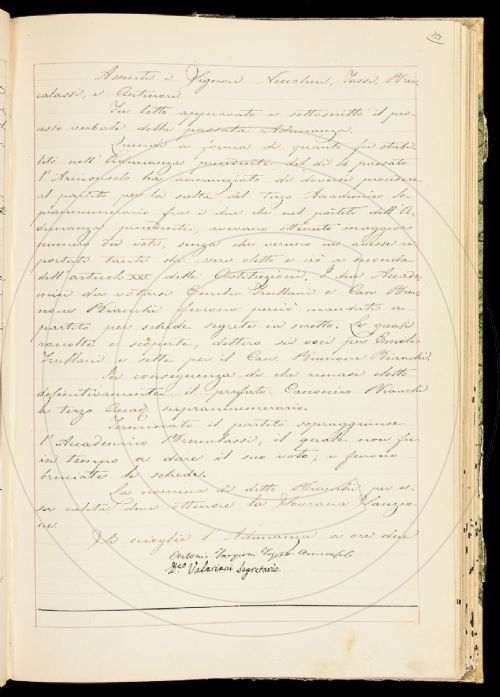 39
Assenti i Signori Niccolini, Tassi, Bru-
calassi, e Antinori
Fu letto approvato e sottoscritto il pro-
cesso verbale della passata Adunanza.
Quindi a forma di quanto fu stabi-
lito nell'Adunanza precedente del dì passato
l'Arciconsolo ha annunziato di doversi procedere
al partito per la scelta del terzo Accademico so-
prannumerario fra i due che nel partito dell'A-
dunanza precedente, avevano ottenuto maggior
numero di voti, senza che veruno ne avesse ri-
portati tanti che vere eletto e ciò a seconda
dell'articolo XXI delle Costituzioni. I due Accade-
mici da votarsi Emilio Frullani e Can. Bru-
none Bianchi furono perciò mandati a
partito per schede segrete in scritto. Le quali
raccolte e scoperte, dettero sei voci per Emilio
Frullani e sette per il Can. Brunone Bianchi.
In conseguenza di che rimase eletto
definitivamente il prefato Canonico Bianchi
a terzo Accad. soprannumerario.
Terminato il partito sopraggiunse
l'Accademico Brucalassi, il quale non fu
in tempo a dare il suo voto; e furono
bruciate le schede.
La nomina di detto Bianchi per es-
ser valida, deve ottenere la Sovrana Sanzio-
ne.
Si scioglie l'Adunanza a ore due
Antonio Targioni Tozzetti Arciconsolo
Valeriani Segretario.